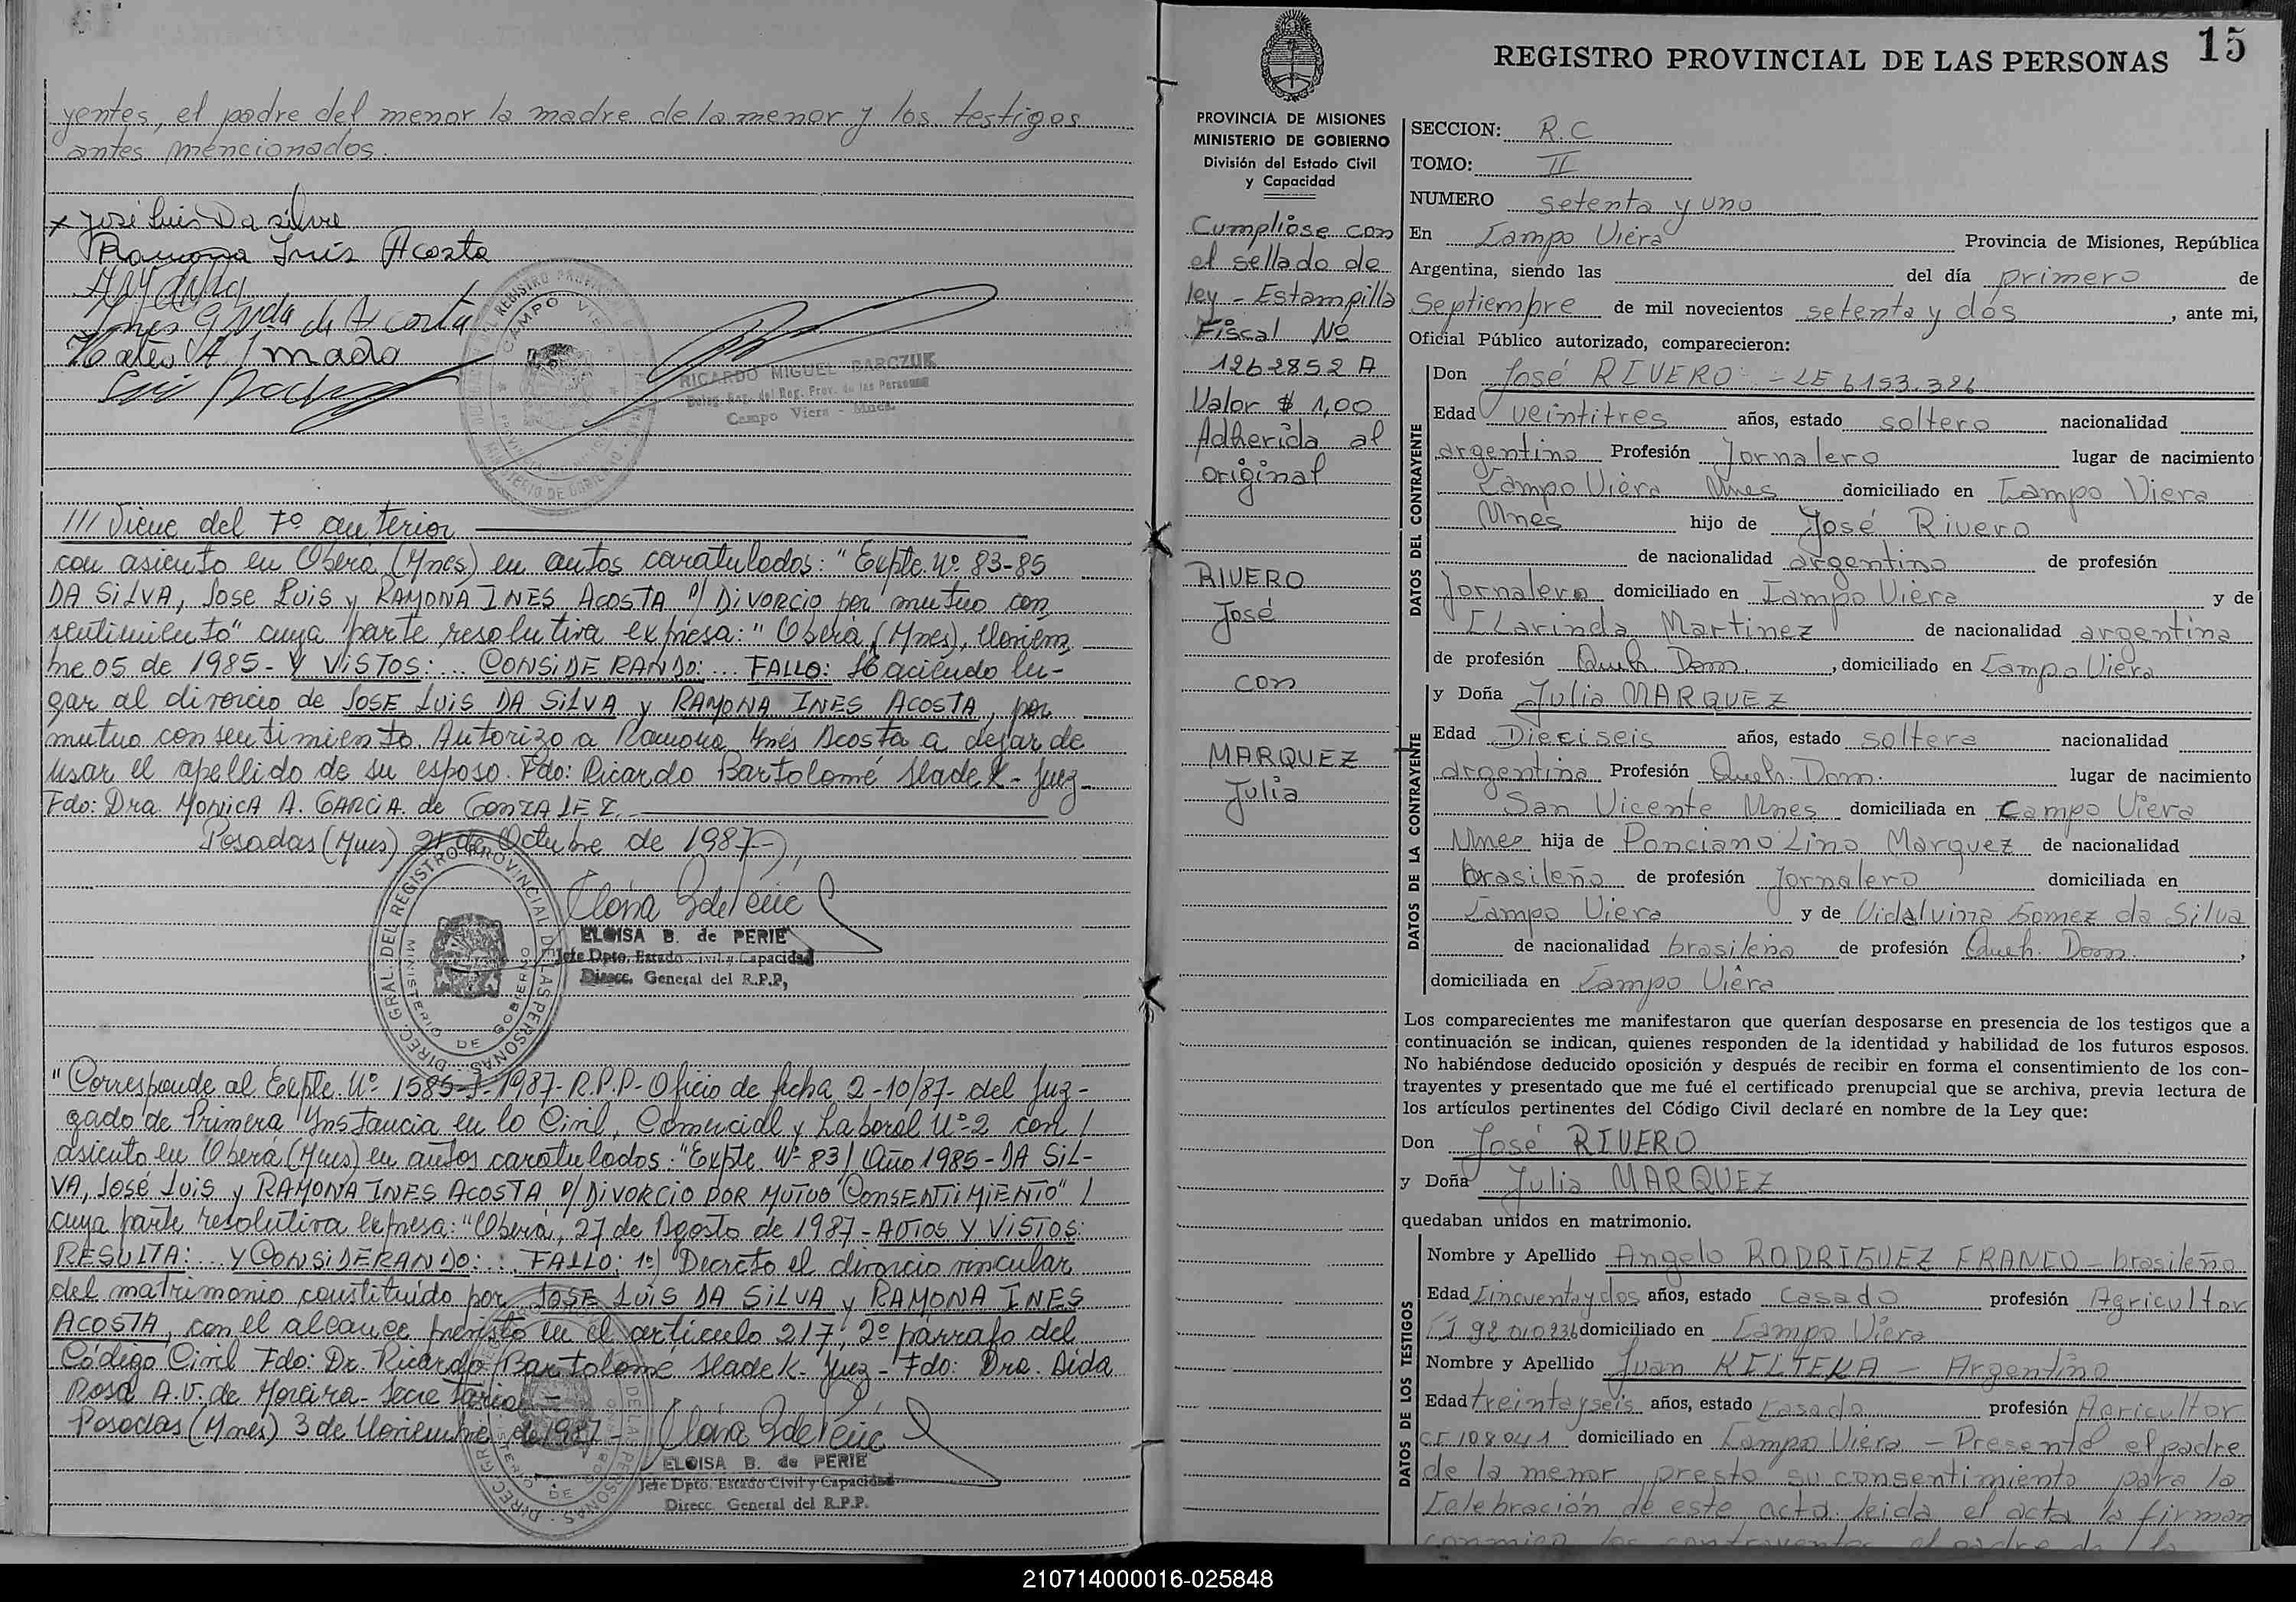 yentes, el padre del menor la madre de la menor y los testigos
antes mencionados.
x José Luis Da silva
Ramona Inés Acosta
Inés G Vda de Acosta
Mateo A Amado
RICARDO MIGUEL BARCZUK
Deleg. Rep. del Reg. Prov. de las Personas
Campo Viera - Mnes.
/// Viene del Fº anterior
con asiento en Oberá (Mnes) en autos caratulados: "Expte. Nº 83-85
DA SILVA, Jose Luis y RAMONA INES ACOSTA s/ DIVORCIO por mutuo con
sentimiento" cuya parte resolutiva expresa: "Oberá, (Mnes), Noviem
bre 05 de 1985 - Y VISTOS: ... CONSIDERANDO: ... FALLO: Haciendo lu-
gar al divorcio de JOSE LUIS DA SILVA y RAMONA INES ACOSTA, por
mutuo consentimiento. Autorizo a Ramona Inés Acosta a dejar de
usar el apellido de su esposo. Fdo: Ricardo Bartolomé Sladek - Juez
Fdo: Dra. MONICA A. GARCIA de GONZALEZ.
Posadas (Mnes) 21 de Octubre de 1987-
DIREC. GRAL. DEL REGISTRO PROVINCIAL DE LAS PERSONAS
MINISTERIO DE GOBIERNO
ELOISA B. de PERIE
Jefe Dpto. Estado Civil y Capacidad
Direcc. General del R.P.P.
"Corresponde al Expte. Nº 1585-J-1987-R.P.P- Oficio de fecha 2-10/87- del Juz-
gado de Primera Instancia en lo Civil, Comercial y Laboral Nº 2 con /
asiento en Oberá (Mnes) en autos caratulados: "Expte. Nº 83/ Año 1985 - DA SIL-
VA, José Luis y RAMONA INES ACOSTA s/ DIVORCIO POR MUTUO CONSENTIMIENTO" /
cuya parte resolutiva expresa: "Oberá, 27 de Agosto de 1987 - AUTOS Y VISTOS:
RESULTA: ... Y CONSIDERANDO: : . FALLO: 1º) Decreto el divorcio vincular
del matrimonio constituído por JOSE LUIS DA SILVA y RAMONA INES
ACOSTA, con el alcance previsto en el artículo 217, 2º párrafo del
Código Civil Fdo: Dr. Ricardo Bartolomé Sladek - Juez - Fdo: Dra. Aida
Rosa A.V. de Moreira - Secretaria -
Posadas (Mnes) 3 de Noviembre de 1987 -
ELOISA B. de PERIE
Jefe Dpto. Estado Civil y Capacidad
Direcc. General del R.P.P.
REGISTRO PROVINCIAL DE LAS PERSONAS 15
PROVINCIA DE MISIONES
MINISTERIO DE GOBIERNO
División del Estado Civil
y Capacidad
Cumplióse con
el sellado de
ley - Estampilla
Fiscal Nº
1262852 A
Valor $ 1,00
Adherida al
original
RIVERO
José
con
MARQUEZ
Julia
SECCION: R.C
TOMO: II
NUMERO setenta y uno
En Campo Viera Provincia de Misiones, República
Argentina, siendo las del día primero de
Septiembre de mil novecientos setenta y dos, ante mi,
Oficial Público autorizado, comparecieron:
DATOS DEL CONTRAYENTE
Don José RIVERO - LE 6193.326
Edad veintitres años, estado soltero nacionalidad
argentino Profesión Jornalero lugar de nacimiento
Campo Viera Mnes domiciliado en Campo Viera
Mnes hijo de José Rivero
de nacionalidad argentino de profesión
Jornalero domiciliado en Campo Viera y de
Clarinda Martinez de nacionalidad argentina
de profesión Queh. Dom., domiciliado en Campo Viera
DATOS DE LA CONTRAYENTE
y Doña Julia MARQUEZ
Edad Dieciseis años, estado soltera nacionalidad
argentina Profesión Queh. Dom. lugar de nacimiento
San Vicente Mnes domiciliada en Campo Viera
Mnes hija de Ponciano Lino Marquez de nacionalidad
brasileño de profesión Jornalero domiciliada en
Campo Viera y de Vidalvina Gomez da Silva
de nacionalidad brasileña de profesión Queh. Dom.,
domiciliada en Campo Viera
Los comparecientes me manifestaron que querían desposarse en presencia de los testigos que a
continuación se indican, quienes responden de la identidad y habilidad de los futuros esposos.
No habiéndose deducido oposición y después de recibir en forma el consentimiento de los con-
trayentes y presentado que me fué el certificado prenupcial que se archiva, previa lectura de
los artículos pertinentes del Código Civil declaré en nombre de la Ley que:
Don José RIVERO
y Doña Julia MARQUEZ
quedaban unidos en matrimonio.
DATOS DE LOS TESTIGOS
Nombre y Apellido Angelo RODRIGUEZ FRANCO - brasileño
Edad Cincuenta y dos años, estado casado profesión Agricultor
CI 92 010236 domiciliado en Campo Viera
Nombre y Apellido Juan KELTEKA - Argentino
Edad treinta y seis años, estado casado profesión Agricultor
CI 108041 domiciliado en Campo Viera - Presente el padre
de la menor presto su consentimiento para la
Celebración de este acta. leida el acta la firman
conmigo los contrayentes el padre de la
210714000016-025848